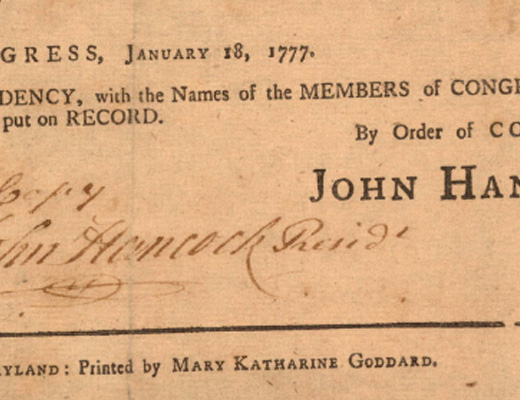 GRESS, JANUARY 18, 1777.
DENCY, with the Names of the MEMBERS of CONG
put on RECORD.
By Order of CO
JOHN HAN
Copy
John Hancock Presidt
YLAND: Printed by MARY KATHARINE GODDARD.